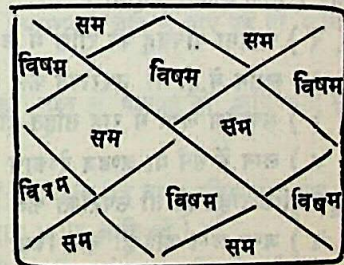 सम सम
विषम विषम विषम
सम सम
विषम विषम विषम
सम सम